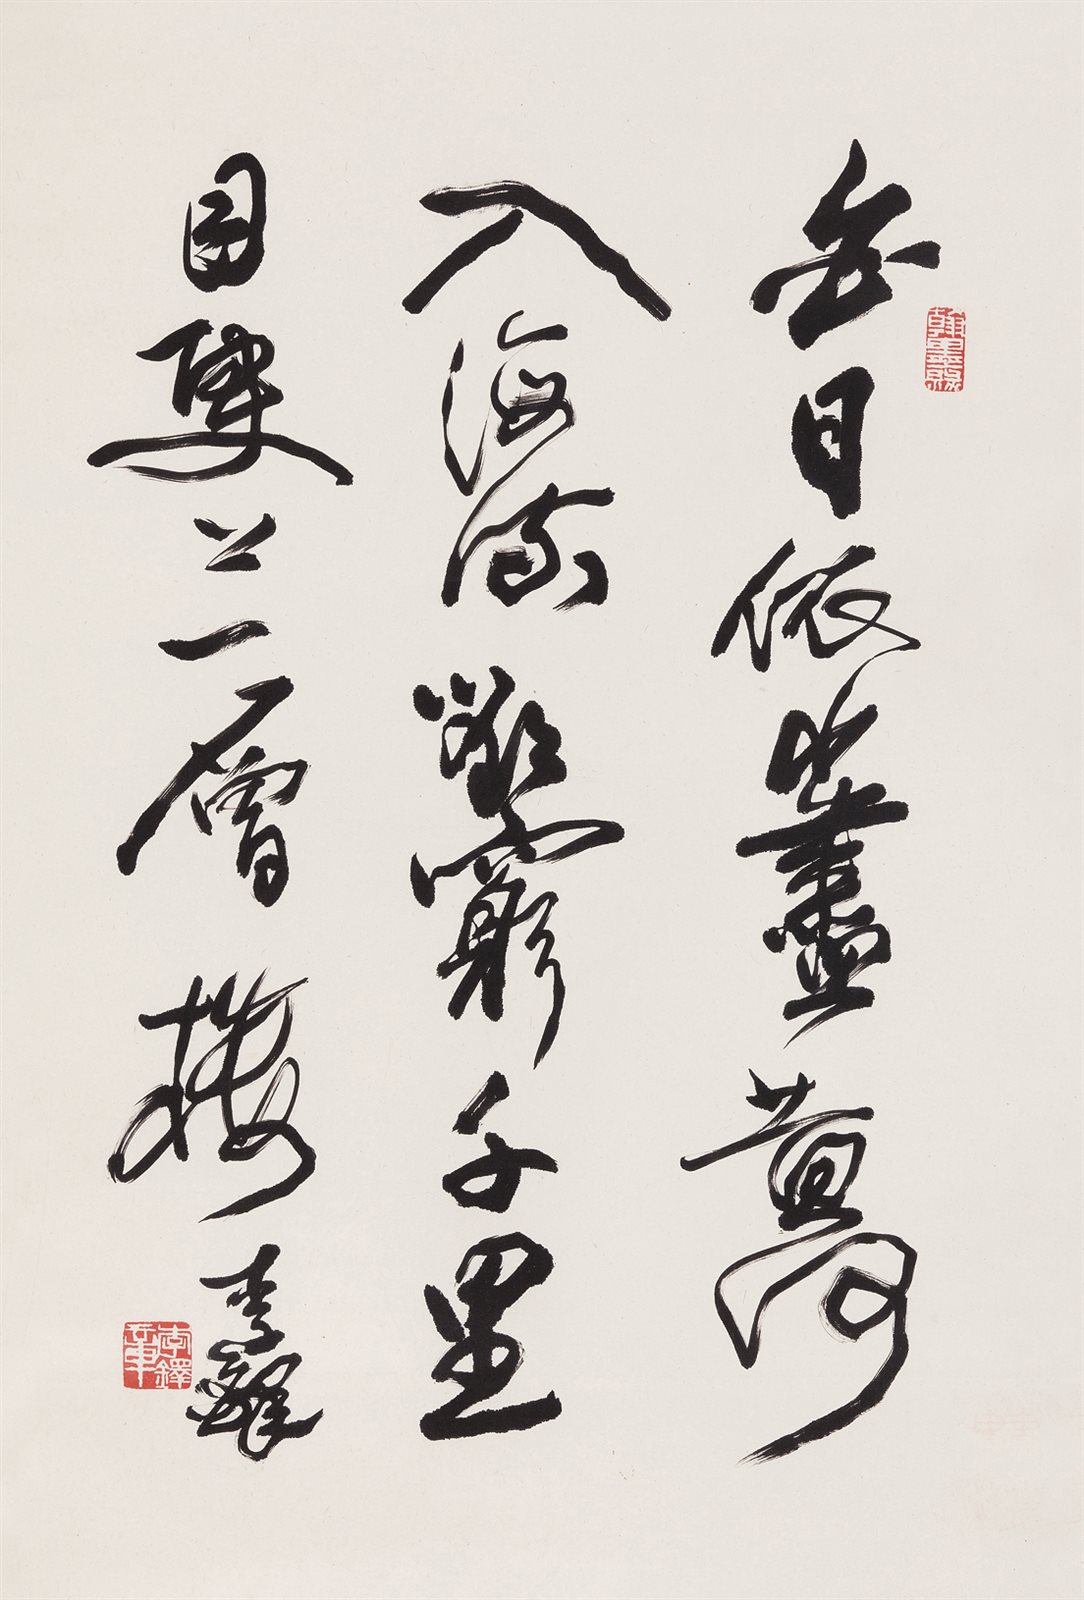 白日依山盡黃河
入海流欲窮千里
目更上一層樓 李鐸
翰墨緣